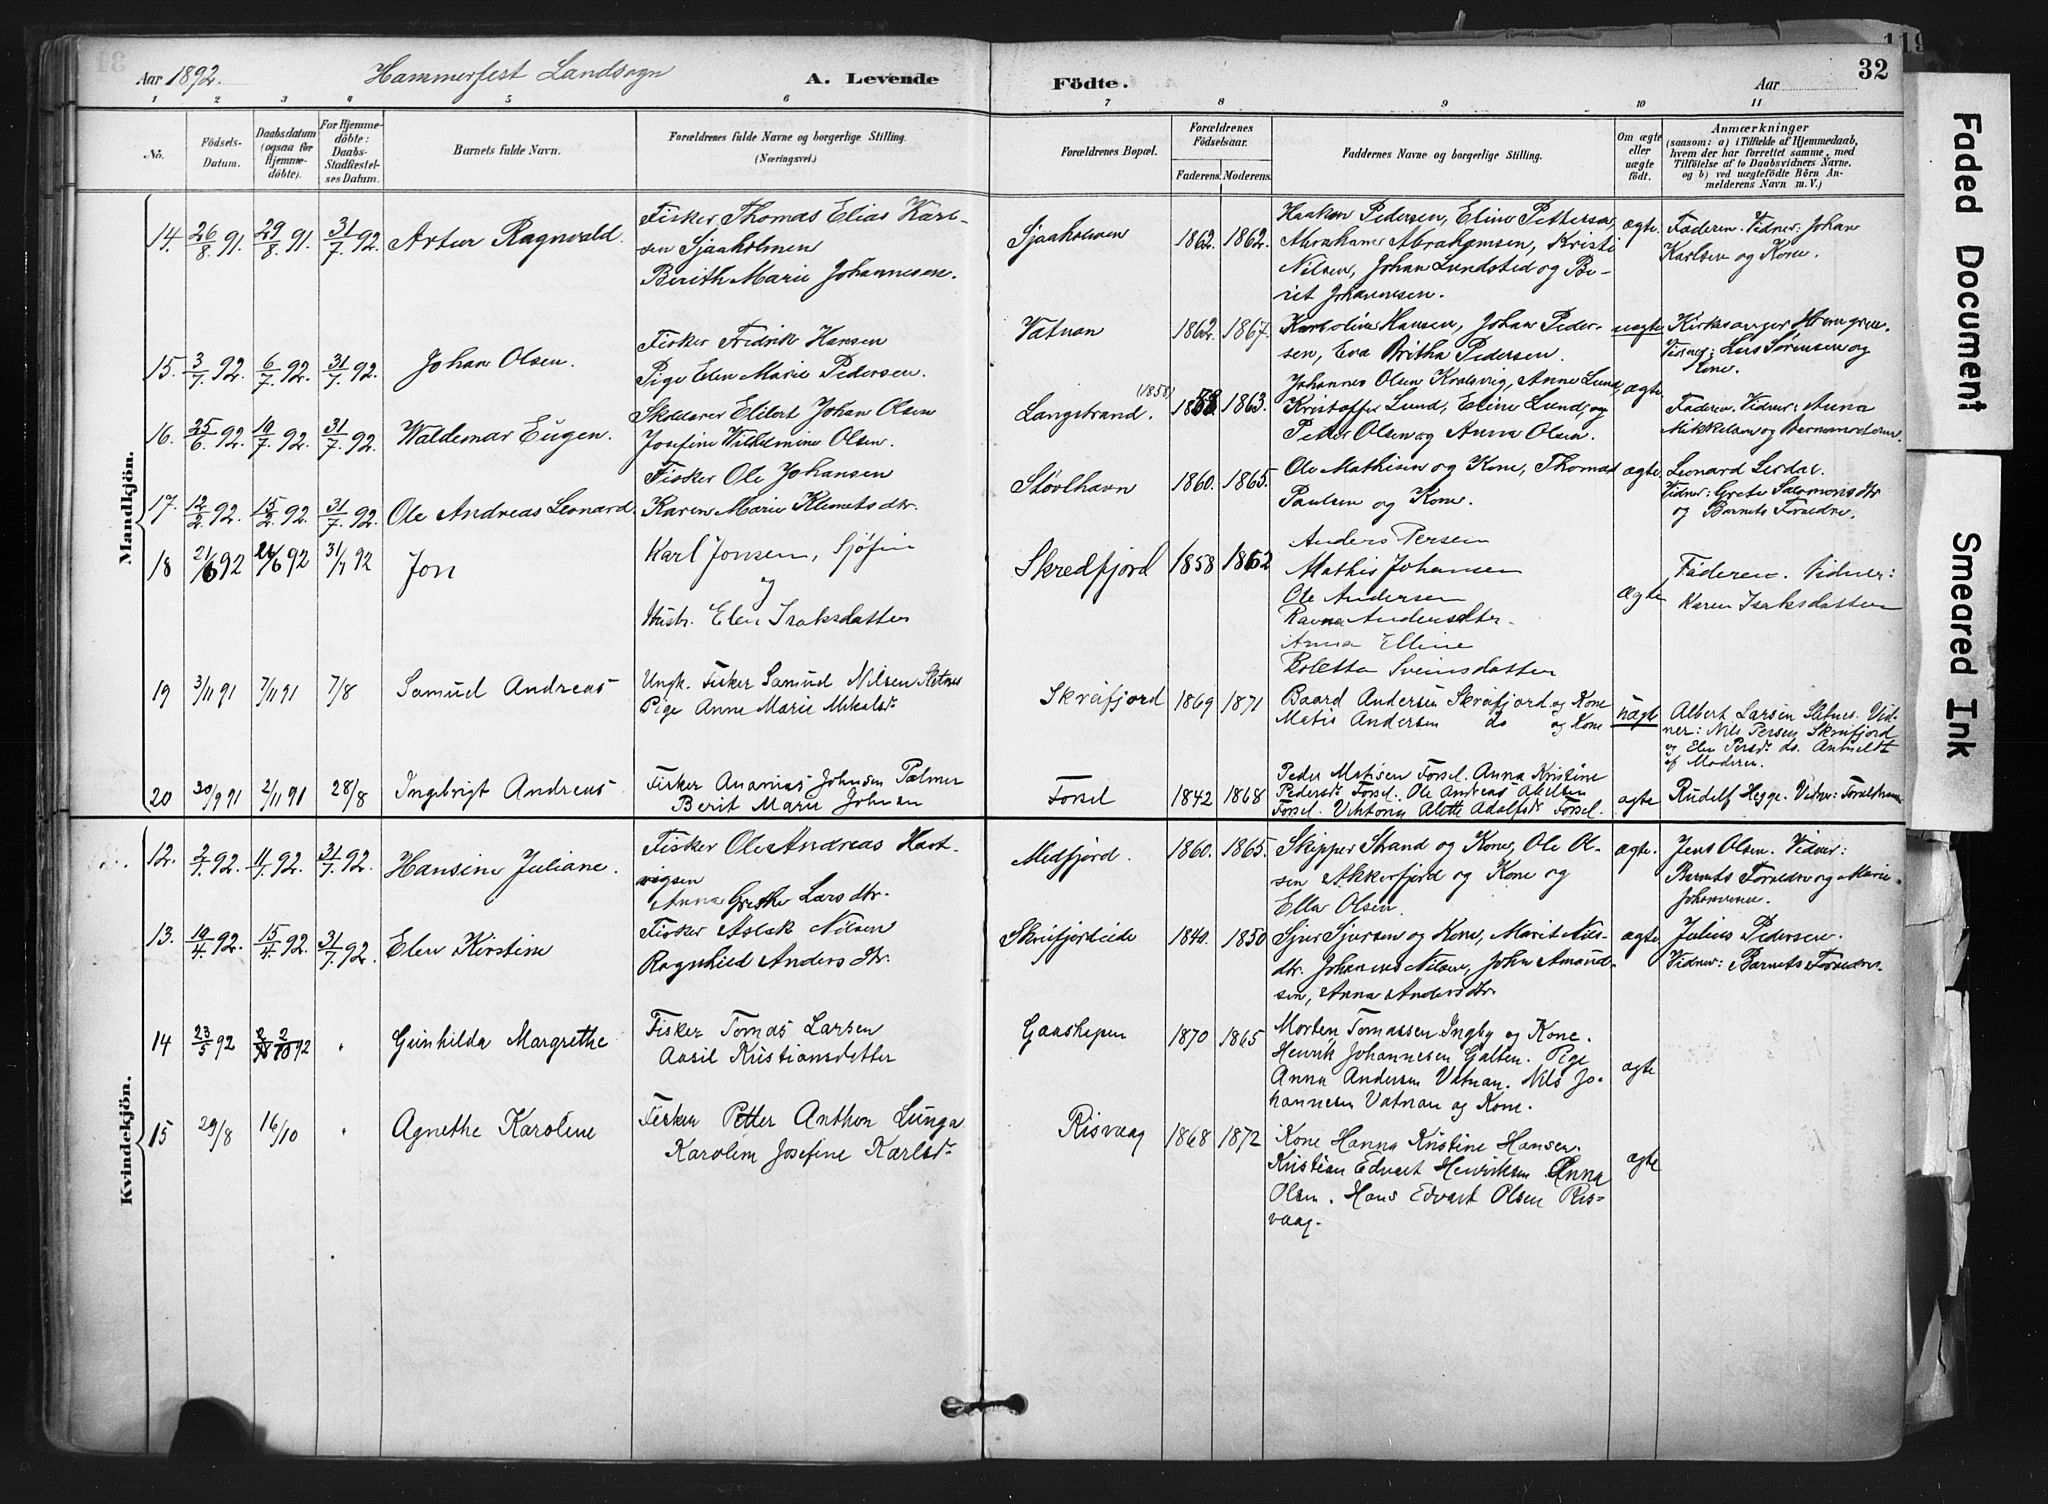 119
32
Aar 1892. Hammerfest Landsogn A. Levende Födte. Aar
1 2 3 4 5 6 7 8 9 10 11
No. Födsels-Datum. Daabsdatum (ogsaa for Hjemme-döbte). For Hjemme-döbte: Daabs-Stadfæstel-ses Datum. Barnets fulde Navn. Forældrenes fulde Navne og borgerlige Stilling. (Næringsvei.) Forældrenes Bopæl. Forældrenes Födselsaar. Faderens. Moderens. Faddernes Navne og borgerlige Stilling. Om ægte eller uægte födt. Anmærkninger (saasom: a) i Tilfælde af Hjemmedaab, hvem der har forrettet samme, med Tilföielse af to Daabsvidners Navne. og b) ved uægtefödte Börn An-melderens Navn m. V.)
Mandkjön.
14. 26/8 91. 29/8 91. 31/7 92. Artur Ragnvald.
Fisker Thomas Elias Karl-
sen Sjaaholmen
Berith Marie Johannesen.
Sjaaholmen 1862. 1862.
Haakon Pedersen, Eline Pettersen,
Abraham Abrahamsen, Kristi
Nilsen, Johan Lundstid og Be-
rit Johannesen.
ægte. Faderen. Vidner: Johan
Karlsen og Kone.
15. 3/7 92. 6/7 92. 31/7 92. Johan Olsen.
Fisker Fredrik Hansen
Pige Elen Marie Pedersen.
Vatnan 1862. 1867.
Karoline Hansen, Johan Peder-
sen, Eva Britha Pedersen.
uægte. Kirkesanger
Vidner: Lars Sörensen og
Kone.
16. 25/6 92. 10/7 92. 31/7 92. Waldemar Eugen.
Skolelærer Johan Olsen
Josefine Wilhelmine Olsen.
Langstrand. (1858) 1858. 1863.
Johannes Olsen Kvalsvig, Anne Lund,
Kristoffer Lund, Eline Lund, og
Peder Olsen og Anna Olsen.
ægte. Faderen. Vidner: Anna
Mikkelsen og Barnemoderen.
17. 12/2 92. 15/2 92. 31/7 92. Ole Andreas Leonard.
Fisker Ole Johansen
Karen Marie Klemetsdtr.
Stövlhavn 1860. 1865.
Ole Mathisen og Kone, Thomas
Paulsen og Kone.
ægte. Leonard
Vidner: Grete Salamonsdtr
og Barnets Forældre.
18 21/6 92 24/6 92 31/7 92 Jon
Karl Jonsen, Sjöfin
Hustr. Elen Isaksdatter
Skredfjord 1858 1862
Anders Persen
Mathis Johansen
Ole Andersen
Ravna Andersdtr.
Anna Elline
Boletta Svensdatter
Ægte Faderen. Vidner:
Karen Isaksdatter
19 3/11 91 7/11 91 7/8 Samuel Andreas
Ungk. Fisker Samuel Nilsen Sletnes
Pige Anne Marie Mikalsdr
Skreifjord 1869 1871
Baard Andersen Skreifjord og Kone
Matis Andersen do og Kone
uægte Albert Larsen Sletnes. Vid-
ner: Nils Persen Skreifjord
og Elen Persdr. do. Anmeldt
af Moderen.
20 30/9 91 2/11 91 28/8 Ingebrigt Andreas
Fisker Ananias Johnsen Palmer
Berit Marie Johnsen
Forsöl 1842 1868
Peder Matisen Forsöl. Anna Kristine
Pedersdr Forsöl. Ole Andreas Abelsen
Forsöl. Viktoria Alette Adolfsdr Forsöl.
ægte Rudolf Hegge. Vidner: Forældrene
Kvindekjön.
12. 2/7 92. 11/7 92. 31/7 92. Hansine Juliane.
Fisker Ole Andreas Hart-
vigsen
Anna Grethe Larsdtr.
Medfjord. 1860. 1865.
Skipper Strand og Kone, Ole Ol-
sen Akkerfjord og Kone og
Ella Olsen.
ægte. Jens Olsen. Vidner:
Barnets Forældre og Marie
Johannesen.
13. 10/4 92. 15/4 92. 31/7 92. Elen Kirstine
Fisker Aslak Nilsen
Ragnhild Andersdtr.
Skreifjordeide 1840. 1850
Sjur Sjursen og Kone, Marit Nils-
dtr. Johannes Nilsen, John Amund-
sen, Anna Andersdtr.
ægte Julius Pedersen.
Vidner: Barnets Forældre.
14 23/5 92 2/10 92 Gunhilda Margrethe
Fisker Tomas Larsen
Aasil Kristiansdatter
Gaashopen 1870 1865
Morten Tomassen Ingöy og Kone.
Henrik Johannesen Galten. Pige
Anna Andersen Vatnan. Nils Jo-
hannesen Vatnan og Kone.
ægte
15 29/8 16/10 Agnethe Karoline
Fisker Petter Anthon Lunga
Karoline Josefine Karlsdr
Risvaag 1868 1872
Kone Hanna Kristine Hansen.
Kristian Edvart Henriksen Anna
Olsen. Hans Edvart Olsen Ris-
vaag.
ægte
Faded Document
Smeared Ink